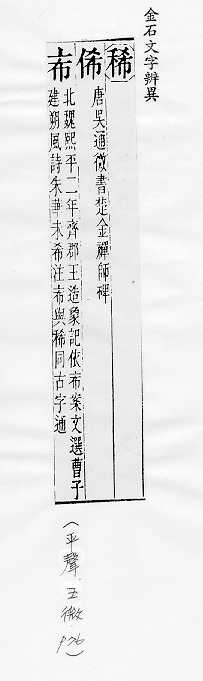 金石文字辨異
稀
俙 唐吳通微書楚金禪師碑
布 北魏熙平二年齊郡王造象記依布案文選曹子
建朔風詩朱華未希注布與稀同古字通
(平聲 五微 P76)